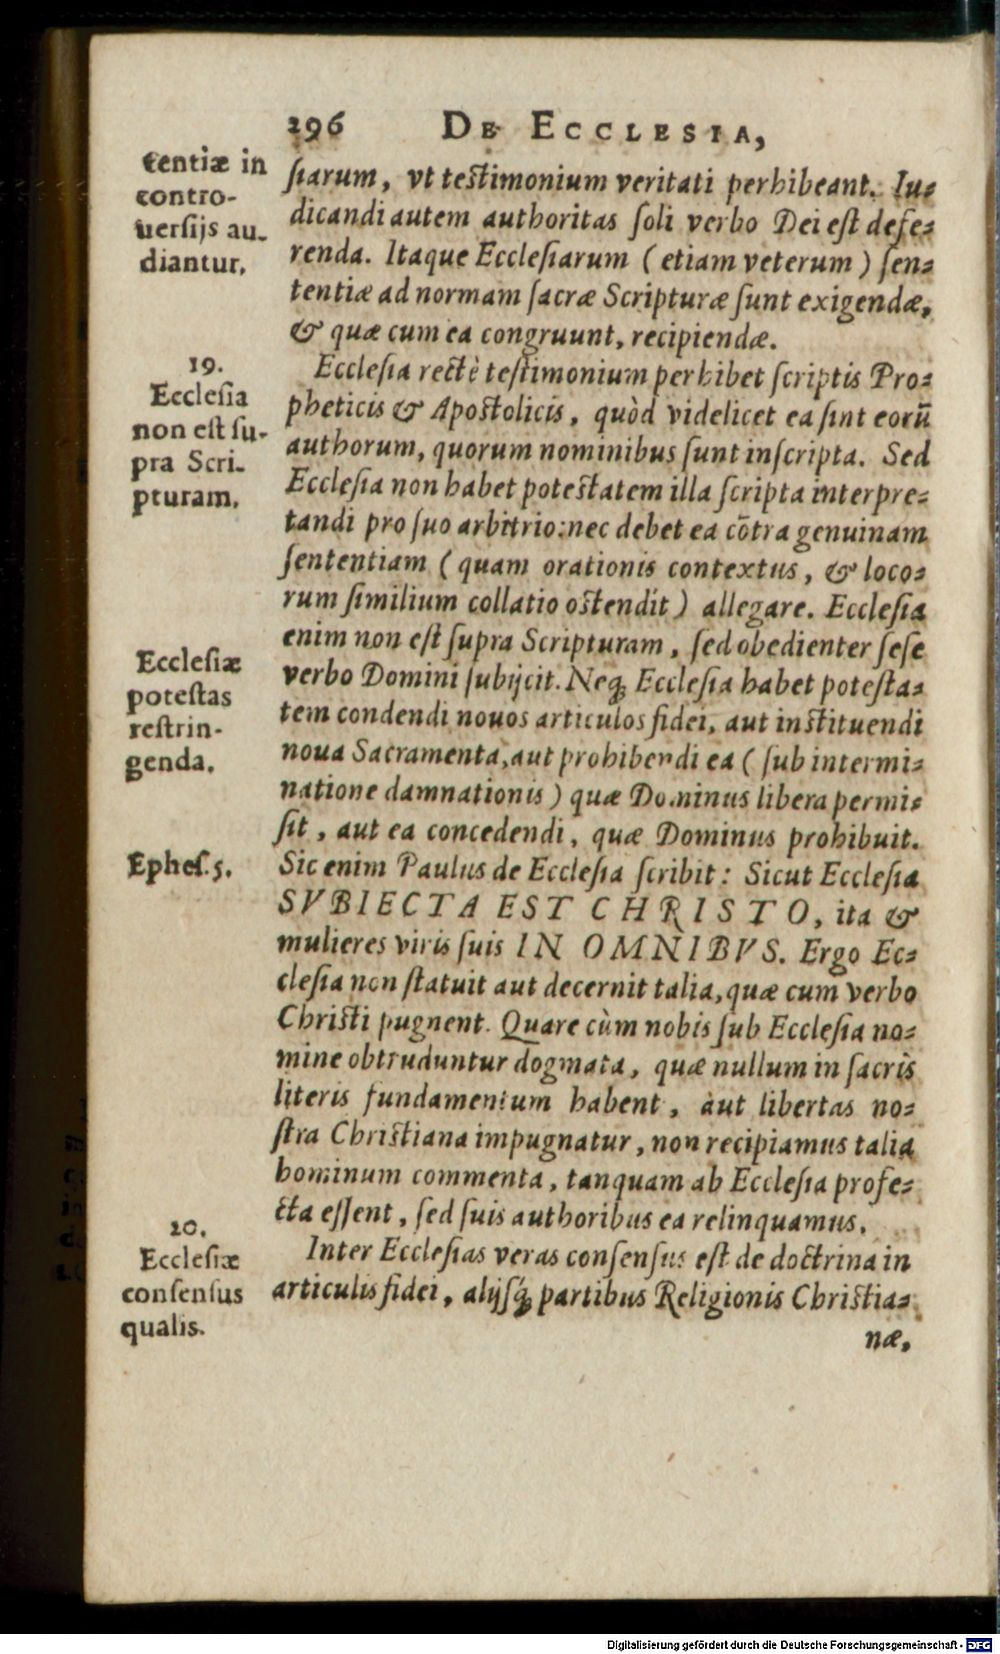 296 DE ECCLESIA,
tentiæ in
contro-
uersijs au-
diantur.
ſiarum, vt teſtimonium veritati perhibeant. Iu-
dicandi autem authoritas ſoli verbo Dei eſt defe-
renda. Itaque Eccleſiarum (etiam veterum) ſen-
tentiæ ad normam ſacræ Scripturæ ſunt exigendæ,
& quæ cum ea congruunt, recipiendæ.
19.
Eccleſia
non eſt ſu-
pra Scri-
pturam.
Eccleſia rectè teſtimonium perhibet ſcriptis Pro-
pheticis & Apoſtolicis, quòd videlicet ea ſint eorū
authorum, quorum nominibus ſunt inſcripta. Sed
Eccleſia non habet poteſtatem illa ſcripta interpre-
tandi pro ſuo arbitrio: nec debet ea cōtra genuinam
ſententiam (quam orationis contextus, & loco-
rum ſimilium collatio oſtendit) allegare. Eccleſia
enim non eſt ſupra Scripturam, ſed obedienter ſeſe
Eccleſiæ
poteſtas
reſtrin-
genda.
verbo Domini ſubijcit. Neq; Eccleſia habet poteſta-
tem condendi nouos articulos fidei, aut inſtituendi
noua Sacramenta, aut prohibendi ea (ſub intermi-
natione damnationis) quæ Dominus libera permi-
ſit, aut ea concedendi, quæ Dominus prohibuit.
Epheſ. 5.
Sic enim Paulus de Eccleſia ſcribit: Sicut Eccleſia
SVBIECTA EST CHRISTO, ita &
mulieres viris ſuis IN OMNIBVS. Ergo Ec-
cleſia non ſtatuit aut decernit talia, quæ cum verbo
Chriſti pugnent. Quare cùm nobis ſub Eccleſia no-
mine obtruduntur dogmata, quæ nullum in ſacris
literis fundamentum habent, aut libertas no-
ſtra Chriſtiana impugnatur, non recipiamus talia
hominum commenta, tanquam ab Eccleſia profe-
cta eſſent, ſed ſuis authoribus ea relinquamus.
20.
Eccleſiæ
conſenſus
qualis.
Inter Eccleſias veras conſenſus eſt de doctrina in
articulis fidei, alijſq́; partibus Religionis Chriſtia-
næ,
Digitalisierung gefördert durch die Deutsche Forschungsgemeinschaft - DFG